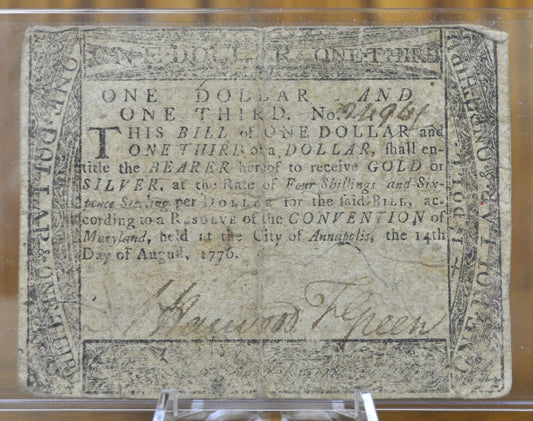 ONE DOLLAR & ONE THIRD
ONE DOLLAR AND
ONE THIRD. No.
THIS BILL of ONE DOLLAR and
ONE THIRD of a DOLLAR, shall en-
title the BEARER hereof to receive GOLD or
SILVER, at the Rate of Four Shillings and Six-
pence Sterling per DOLLAR for the said BILL, ac-
cording to a RESOLVE of the CONVENTION of
Maryland, held at the City of Annapolis, the 14th
Day of August, 1776.
Harwood T Green
ONE DOLLAR &